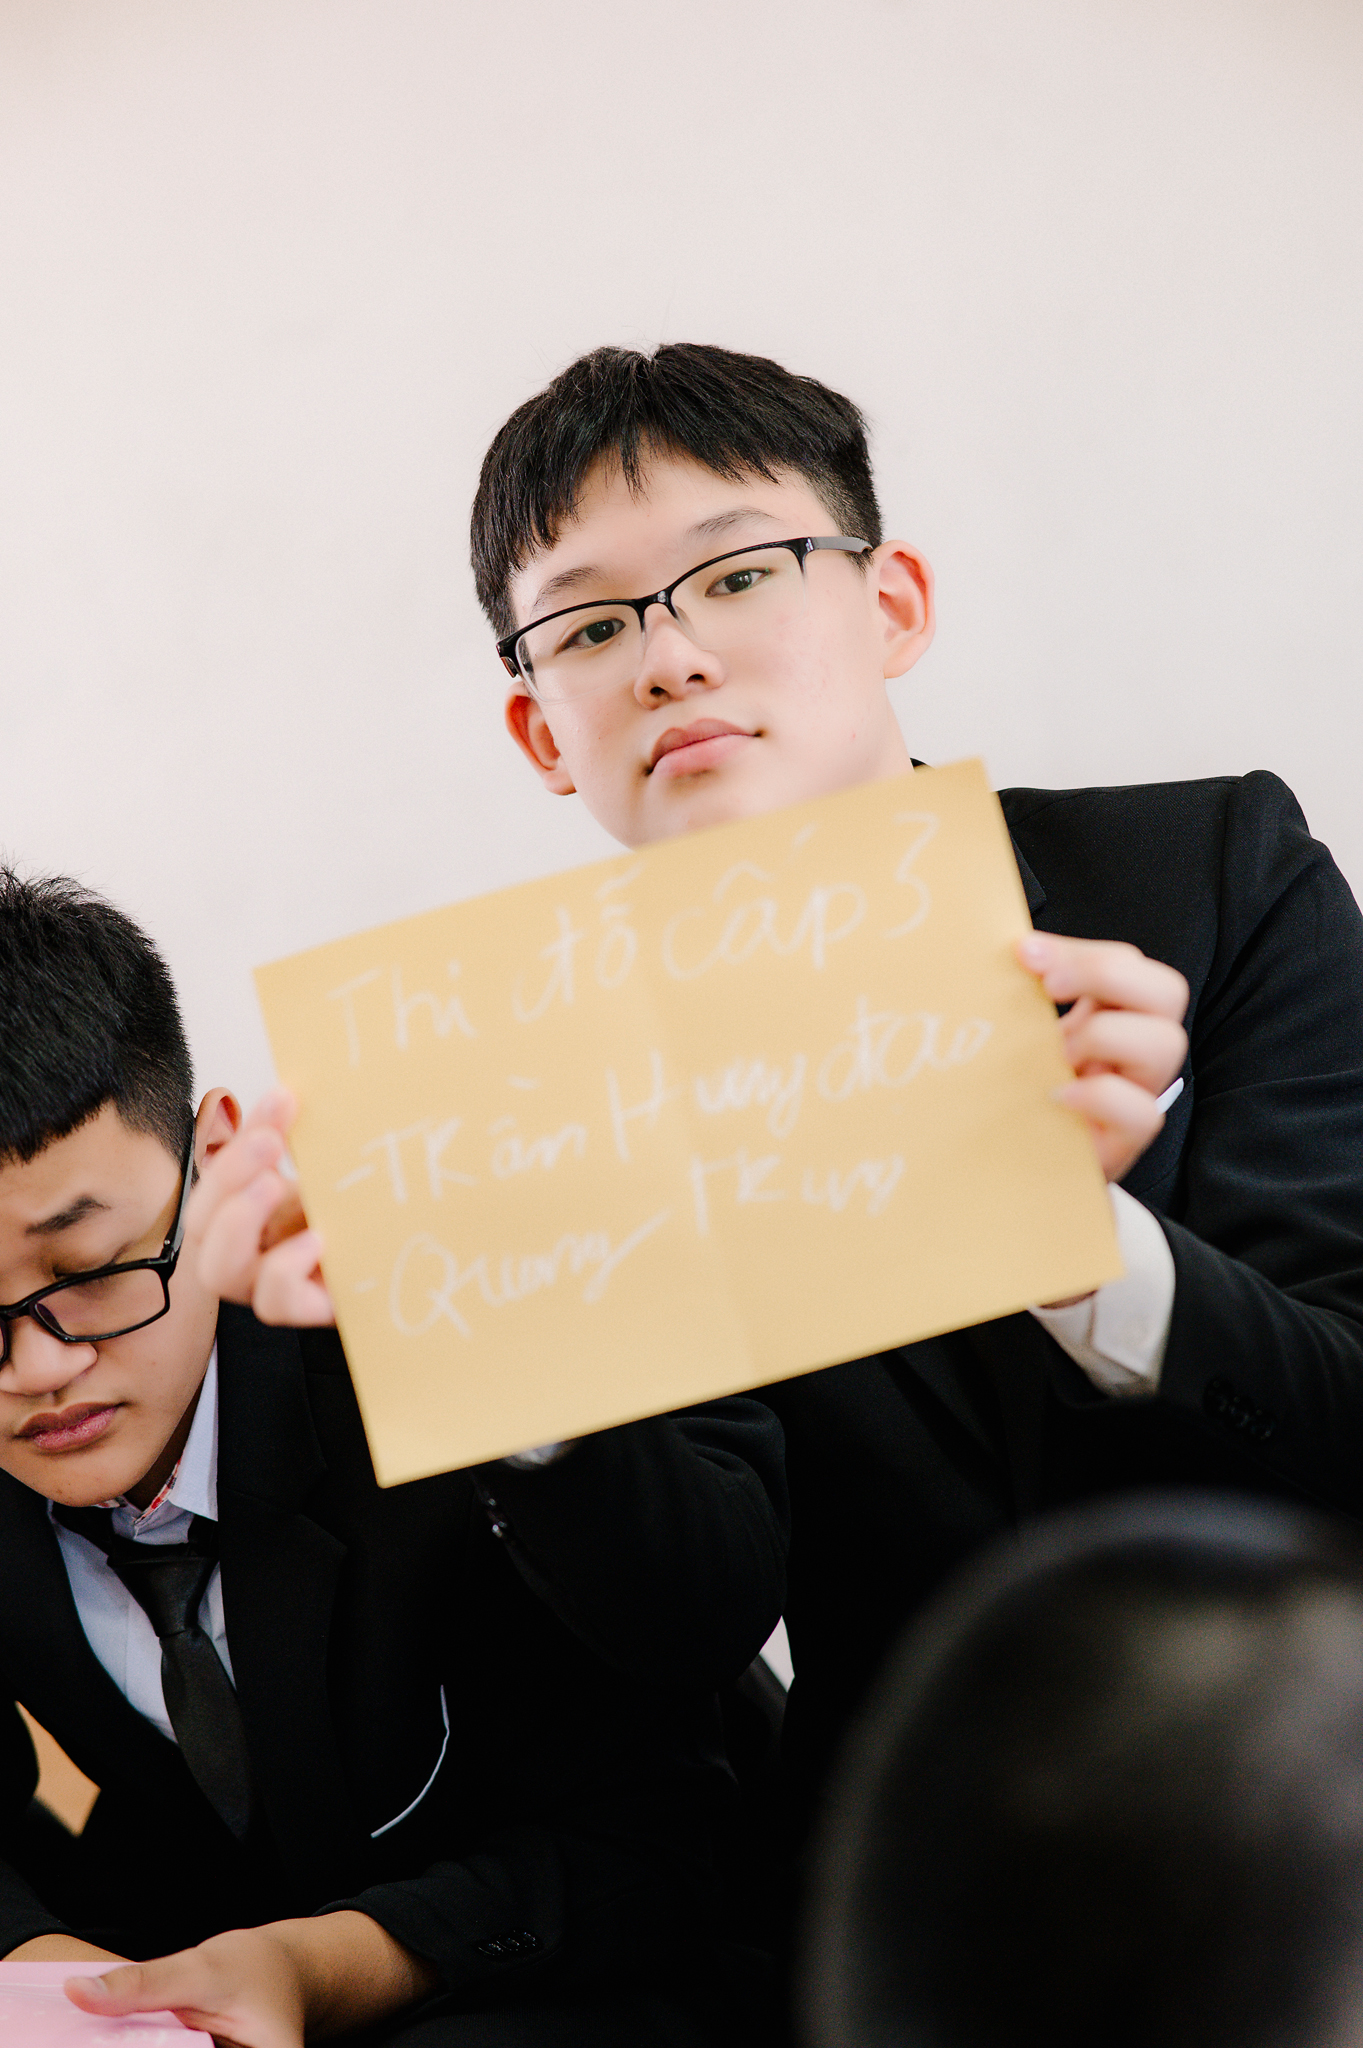 Thi đỗ cấp 3
- TRần Hưng đạo
- Quang TRung